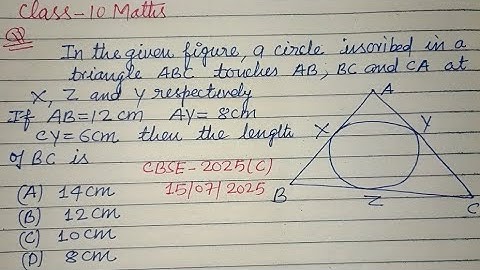 Class-10 Maths
Q
In the given figure, a circle inscribed in a
triangle ABC touches AB, BC and CA at
X, Z and Y respectively
If AB=12cm AY= 8cm
CY=6cm then the length
of BC is
CBSE-2025(C)
15/07/2025
(A) 14cm
(B) 12cm
(C) 10cm
(D) 8cm
A
X
Y
B
Z
C